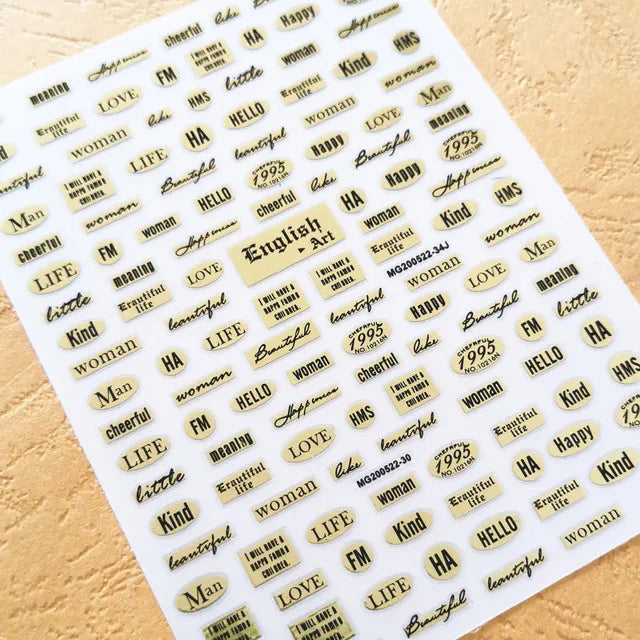 like
Happy
Happiness
cheerful
I WILL HAVE A
HAPPY FAMILY
CHILDREN.
HA
woman
Kind
HMS
meaning
Happiness
FM
little
Erautiful
life
woman
LOVE
like
HMS
HELLO
woman
LOVE
Man
Erautiful
life
woman
HA
beautiful
Happy
Beautiful
meaning
LIFE
Beautiful
CHEERFUL
1995
NO.1021ON
Happy
CHEERFUL
1995
NO.1021ON
Beautiful
I WILL HAVE A
HAPPY FAMILY
CHILDREN.
HELLO
cheerful
like
HA
Happiness
HMS
Man
woman
woman
English
Art
woman
Kind
woman
cheerful
FM
Happiness
Erautiful
life
Man
LIFE
meaning
LOVE
I WILL HAVE A
HAPPY FAMILY
CHILDREN.
I WILL HAVE A
HAPPY FAMILY
CHILDREN.
MG200522-34J
woman
LOVE
meaning
little
Erautiful
life
beautiful
beautiful
Happy
Beautiful
little
Kind
LIFE
Beautiful
CHEERFUL
1995
NO.1021ON
like
CHEERFUL
1995
NO.1021ON
FM
HA
woman
HA
woman
woman
cheerful
HELLO
HMS
Man
HELLO
Happiness
HMS
I WILL HAVE A
HAPPY FAMILY
CHILDREN.
woman
Kind
cheerful
FM
LOVE
beautiful
Erautiful
life
LIFE
meaning
like
MG200522-30
CHEERFUL
1995
NO.1021ON
Happy
little
Erautiful
life
woman
woman
Erautiful
life
HA
Kind
Kind
LIFE
Kind
HELLO
Erautiful
life
beautiful
I WILL HAVE A
HAPPY FAMILY
CHILDREN.
FM
HA
beautiful
woman
Man
LOVE
LIFE
Beautiful
I WILL HAVE A
HAPPY FAMILY
I WILL HAVE A
HAPPY FAMILY